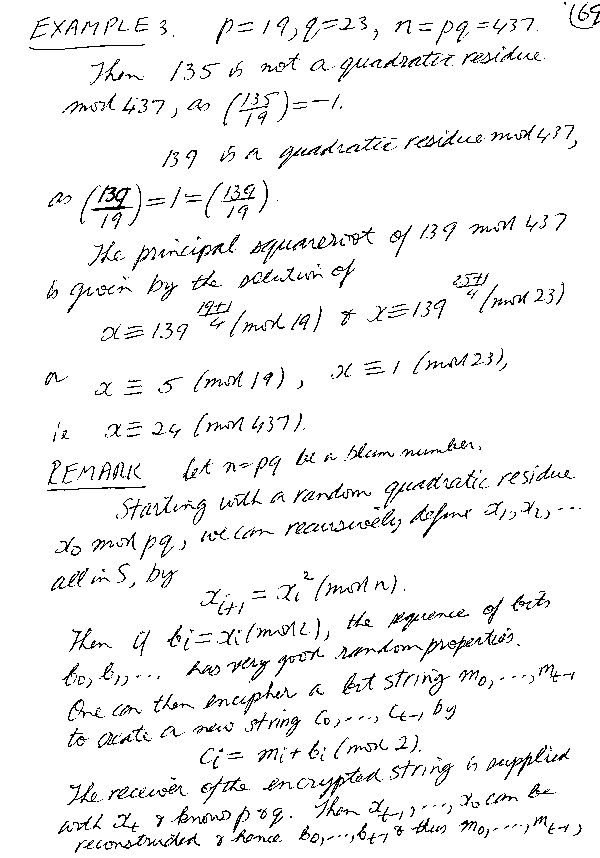 EXAMPLE 3. p=19, q=23, n=pq=437. (169
Then 135 is not a quadratic residue
mod 437, as (135/19)=-1.
139 is a quadratic residue mod 437,
as (139/19)=1=(139/19).
The principal squareroot of 139 mod 437
is given by the solution of
x≡139^((19+1)/4) (mod 19) & x≡139^((23+1)/4) (mod 23)
or x ≡ 5 (mod 19), x ≡ 1 (mod 23),
ie x≡ 24 (mod 437).
REMARK Let n=pq be a blum number.
Starting with a random quadratic residue
x₀ mod pq, we can recursively define x₁, x₂, ...
all in S, by
xᵢ₊₁ = xᵢ² (mod n).
Then if bᵢ=xᵢ(mod 2), the sequence of bits
b₀, b₁, ... has very good random properties.
One can then encipher a bit string m₀, ..., mₜ₋₁
to create a new string c₀, ..., cₜ₋₁ by
cᵢ = mᵢ + bᵢ (mod 2).
The receiver of the encrypted string is supplied
with xₜ & knows p & q. Then xₜ₋₁, ..., x₀ can be
reconstructed & hence b₀, ..., bₜ₋₁ & thus m₀, ..., mₜ₋₁,